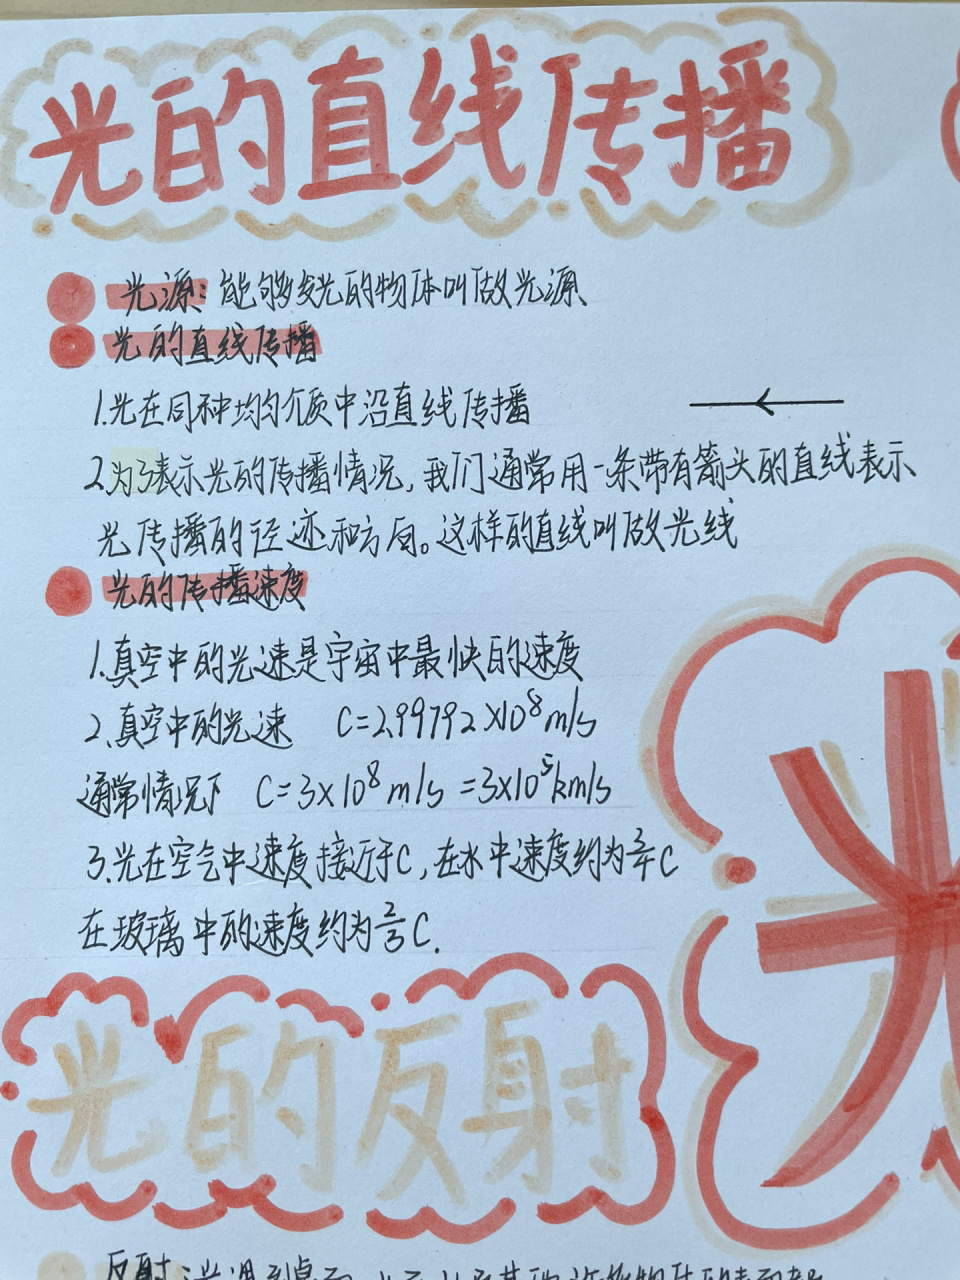 光的直线传播
光源：能够发光的物体叫做光源
光的直线传播
1.光在同种均匀介质中沿直线传播
2.为了表示光的传播情况，我们通常用一条带有箭头的直线表示
光传播的径迹和方向。这样的直线叫做光线
光的传播速度
1.真空中的光速是宇宙中最快的速度
2.真空中的光速 C=2.99792×10⁸m/s
通常情况下 C=3×10⁸m/s=3×10⁵km/s
3.光在空气中速度接近于C，在水中速度约为3/4C
在玻璃中的速度约为2/3C.
光
光的反射
反射：光遇到